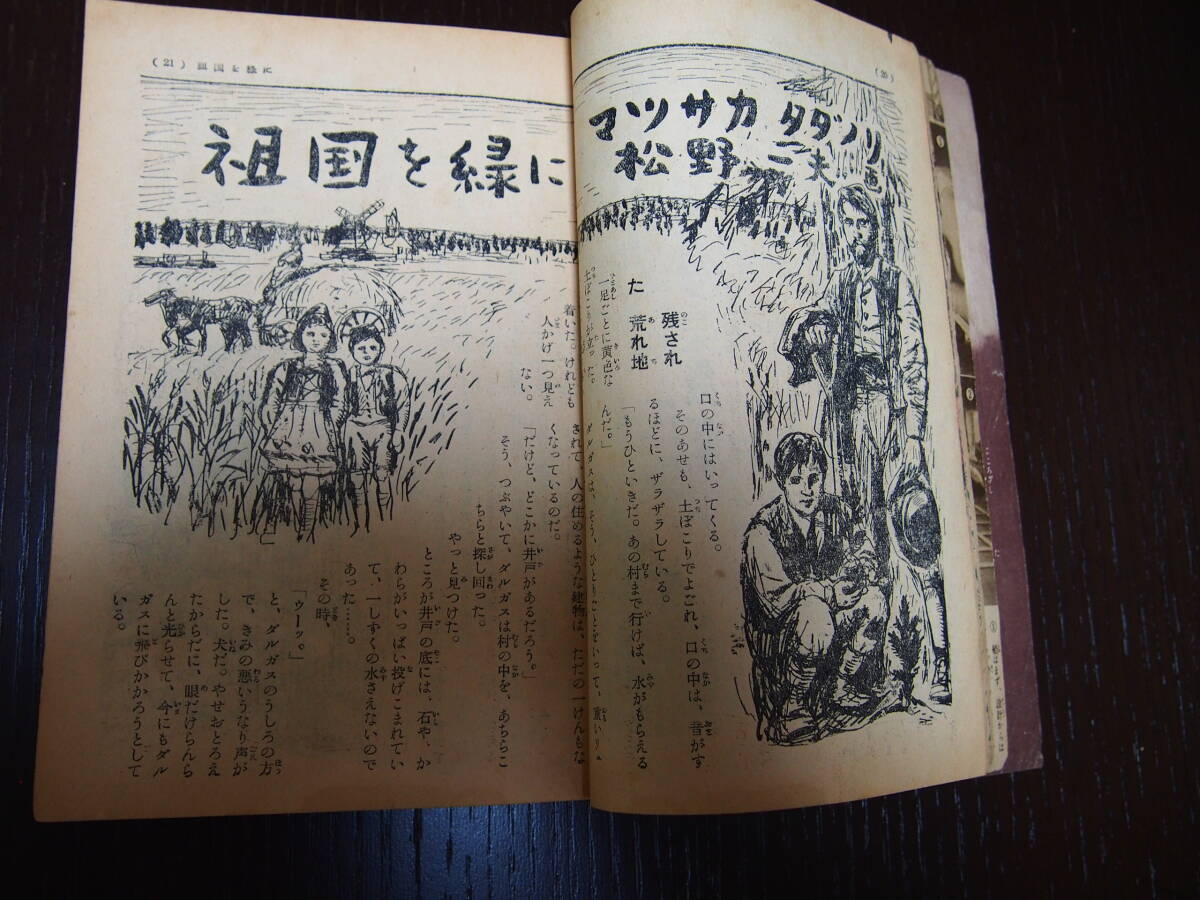 (20)
マツサカ タダノリ
松野一夫画
残され
た 荒れ地
一足ごとに黄色な
土ぼこりが立った。
口の中にはいってくる。
そのあせも、土ぼこりでよごれ、口の中は、音がす
るほどに、ザラザラしている。
「もうひといきだ。あの村まで行けば、水がもらえる
んだ。」
ダルガスは、そう、ひとりごとをいって、重いリュ
(21) 祖国を緑に
祖国を緑に
着いた。けれども
人かげ一つ見え
ない。
されて、人の住めるような建物は、ただの一けんもな
くなっているのだ。
「だけど、どこかに井戸があるだろう。」
そう、つぶやいて、ダルガスは村の中を、あちらこ
ちらと探し回った。
やっと見つけた。
ところが井戸の底には、石や、か
わらがいっぱい投げこまれてい
て、一しずくの水さえないので
あった……。
その時、
「ウーッ。」
と、ダルガスのうしろの方
で、きみの悪いうなり声が
した。犬だ。やせおとろえ
たからだに、眼だけらんら
んと光らせて、今にもダル
ガスに飛びかかろうとして
いる。